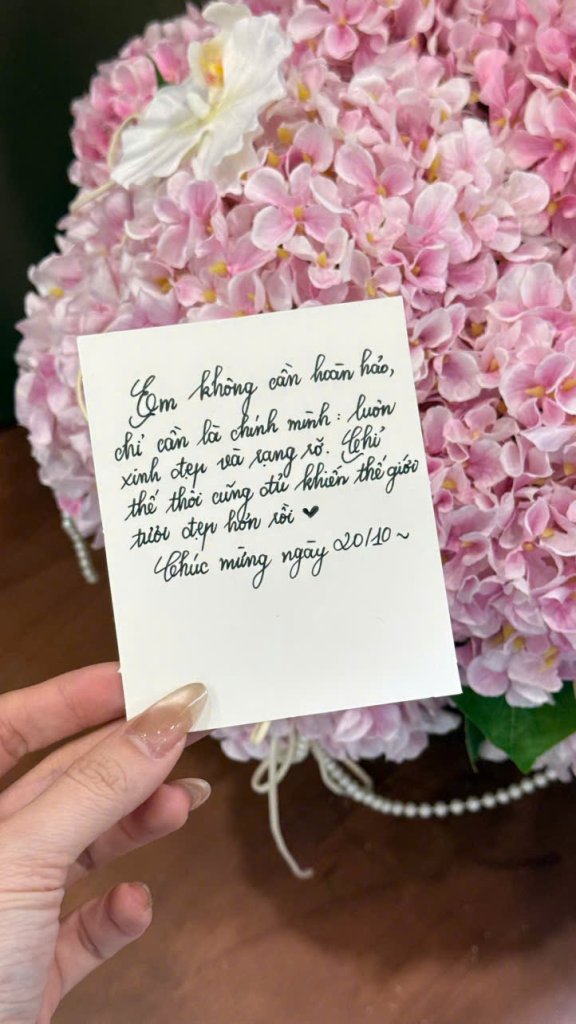 Em không cần hoàn hảo,
chỉ cần là chính mình: luôn
xinh đẹp và rạng rỡ. Chỉ
thế thôi cũng đủ khiến thế giới
tươi đẹp hơn rồi ♥
Chúc mừng ngày 20/10 ~